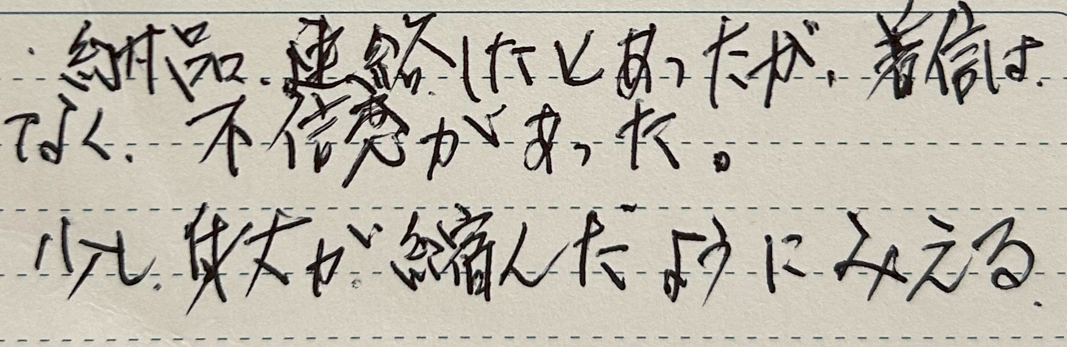 ・納品、連絡したとあったが、着信は
なく、不信感があった。
少し、身丈が縮んだようにみえる.